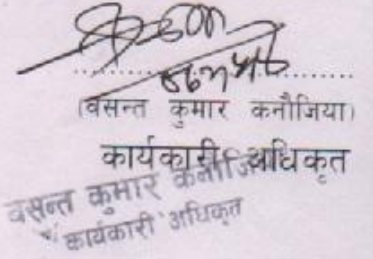 (वसन्त कुमार कनौजिया)
कार्यकारी अधिकृत
वसन्त कुमार कनौजिया
कार्यकारी अधिकृत